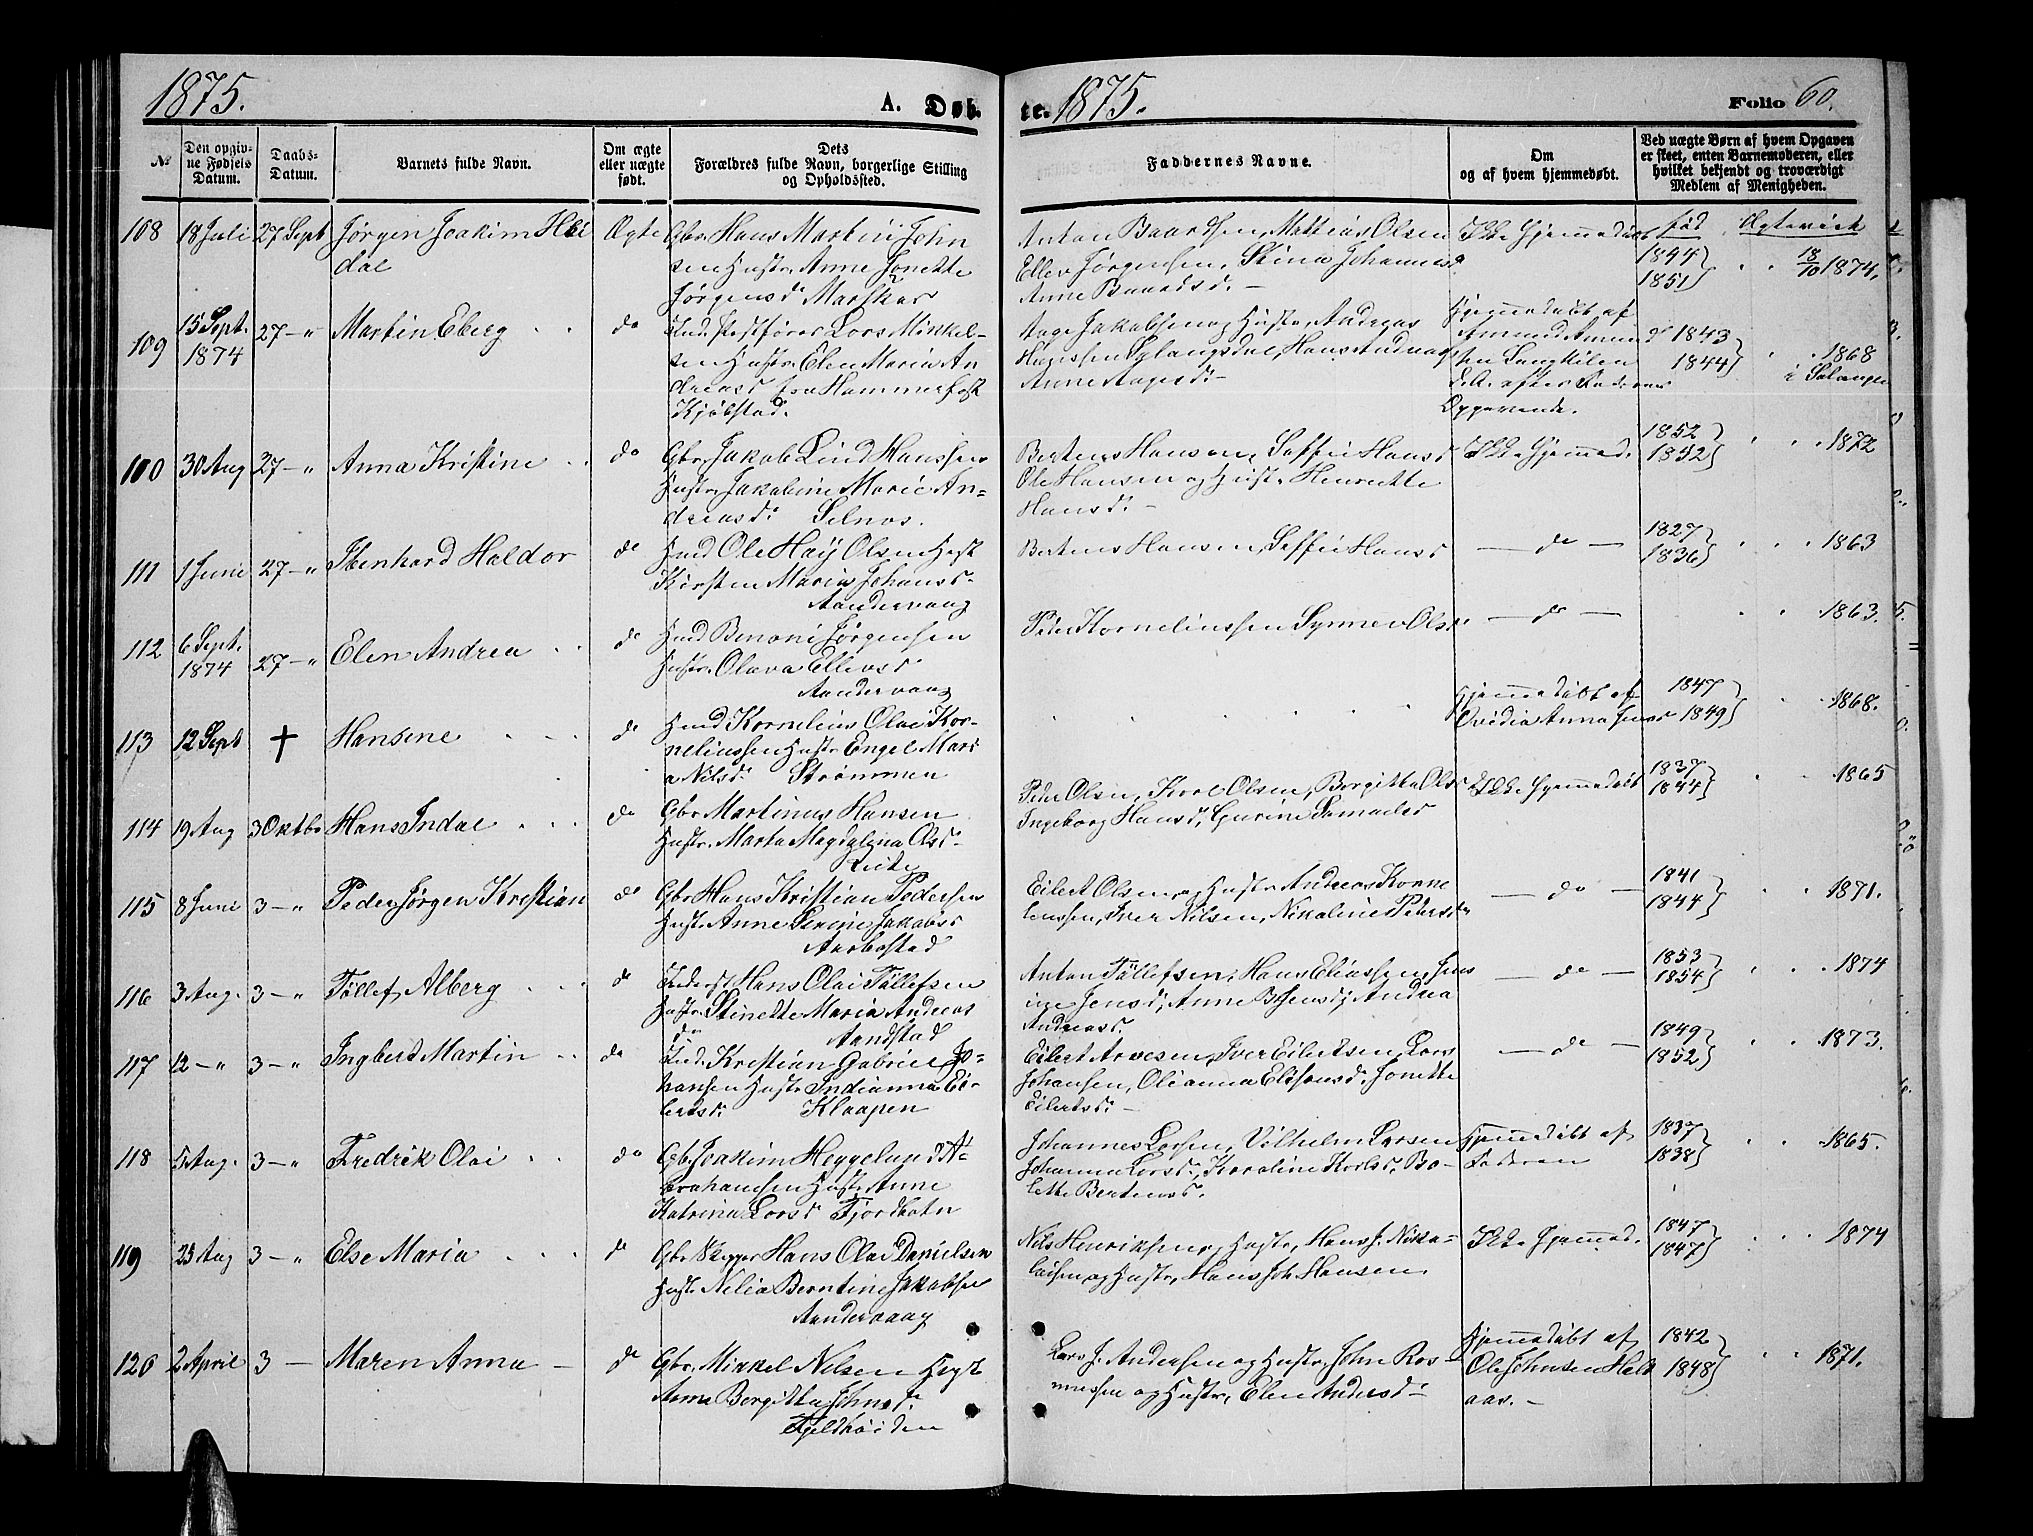 1875.
A. Døb
te. 1875.
Folio 60.
№
Den opgiv-
ne Fødsels
Datum.
Daabs-
Datum.
Barnets fulde Navn.
Om ægte
eller uægte
født.
Dets
Forældres fulde Navn, borgerlige Stilling
og Opholdssted.
Faddernes Navne.
Om
og af hvem hjemmedøbt.
Ved uægte Børn af hvem Opgaven
er skeet, enten Barnemoderen, eller
hvilket bekjendt og troværdigt
Medlem af Menigheden.
108 18 Juli 27 Sept Jørgen Joakim Hei
dal
Ægte
Gbr. Hans Martin John
sen Hustr. Anne Jonette
Jørgensd.
Anton Baardsen, Mathias Olsen
Ellev Jørgensen, Stina Johannesd
Anne Baardsd. –
Ikke Hjemmedøbt
født Ægteviet
1844
1851 18/10 1874,
109 15 Sept. 1874 27 – " Martin Eberg
do
Lars Mikkel-
sen Hustr. Elen Maria An
dreasd fra Hammerfest
Kjøbstad.
Aage Jakobsen og Hustr, Andreas
Salangsdal, Hans Andreas
Anne Aagesd: –
Hjemmedøbt af
Amund Amund
sen
efter Faderens
Opgivende.
1843
1844 1868
i Salangen
100 30 Aug 27 – " Anna Kristine
do
Gbr. Jakob Lind Hanssen
Hustr. Jakobine Marie An-
dreasd: Selnes.
Bertens Hansen, Seffei Hansd
Ole Hansen og Hust. Henrette
Hansd: –
Ikke Hjemmed.
1852
1852 1872
111 1 Juni 27 – " Stenhard Haldor
do
Hmd Ole Høy Olsen Hust
Kirsten Maria Johansd-
Aandervaag
Bertens Hansen, Seffei Hansd
– do –
1827
1836 1863
112 6 Sept. 1874 27 – " Elen Andrea
do
Hmd Benoni Jørgensen
Hustr. Olava Ellevsd
Aandervaag
Peder Kornelinssen Synnev Olsd.
– do –
1863.
113 12 Sept † Hansine
do
Hmd Kornelius Olai Kor-
nelinssen Hustr Engel Mari
a Nilsd: Strømmen
Hjemmedøbt af
Ovedia Anna
1847
1849 1868.
114 19 Aug 3 Oktbr Hans Indal
do
Gbr Martinus Hansen
Hustr. Marta Magdalena Olsd.
Peder Olsen, Karl Olsen, Bergitte Olsd
Ingeborg Hansd, Gurine
Ikke Hjemmedøbt
1837
1844 1865
115 8 Juni 3 – " Peder Jørgen Kristian
do
Gbr. Hans Kristian Pedersen
Hustr Anne Serine Jakobsd
Aarbostad
Eilert Olsen og Hustr Andreas Korne
lenssen, Iver Nilsen, Nikoline Petersd
– do –
1841
1844 1871.
116 3 Aug. 3 – " Tollef Alberg
do
Hans Olai Tollefsen
Hustr. Stinette Maria Andreas
d: Aandstad
Anton Tollefsen, Hans Eliassen, Jens
ine Jensd; Anne B. Jensd; Andrea
Andreasd.
– do –
1853
1854 1874
117 12 – " 3 – " Ingbert Martin
do
Kristian Gabriel Jo-
hansen Hustr Indianna Ei-
lertsd: Klaapen
Eilert Arnesen, Iver Eilertsen, Lars
Johansen, Olianna Elisensd. Jonette
Eilertsd: –
– do –
1849
1852 1873.
118 5 Aug. 3 – " Fredrik Olai
do
Gbr Joakim Heggelund A-
brahamsen Hustr Anne
Katrina Larsd Fjordbotn
Johannes Larsen, Vilhelm Larsen
Johanna Larsd, Karoline Karlsd, Bo-
lette Bertensd.
Hjemmedøbt af
Faderen
1837
1838 1865.
119 25 Aug 3 – " Else Maria
do
Gbr Skipper Hans Olai Danielsen
Hustr Nilia Berntine Jakobsd
Aandervaag
Nils Henriksen og Hustr, Hans J. Nika-
laisen og Hustr, Hans Joh Hansen.
Ikke Hjemmed.
1847
1847 1874
120 2 April 3 – Maren Anna –
do
Gbr. Mikkel Nilsen Hust
Anne Bergitta Johnsd:
Fjeldhøiden
Lars J. Andersen og Hustr, John Ras-
mussen og Hustr, Elen Andersd –
Hjemmedøbt af
Ole Johnsen Halt
aas. –
1842
1848 1871.